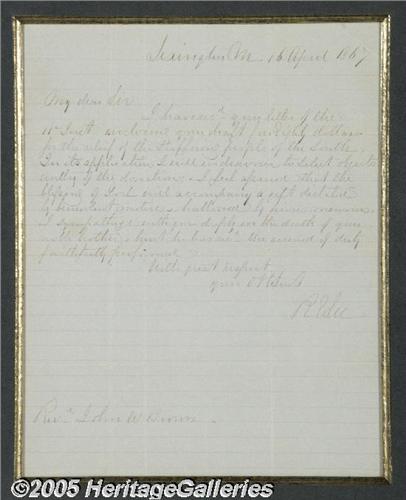 Lexington Va. 16 April 1867
My dear Sir
I have recd your letter of the
11th Inst enclosing your draft for eighty dollars
for the relief of the suffering people of the South.
In its application, I will endeavour to select objects
worthy of the donation. I feel assured that the
blessing of God will accompany a gift dictated
by benevolent motives & hallowed by
I sympathize with you deeply on the death of your
noble brother, but he has recd the reward of duty
faithfully performed
With great respect
your obt Servt
R E Lee
Revd John W Brown
©2005 HeritageGalleries